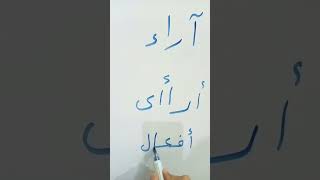 آراء
أرأأى
أفعال